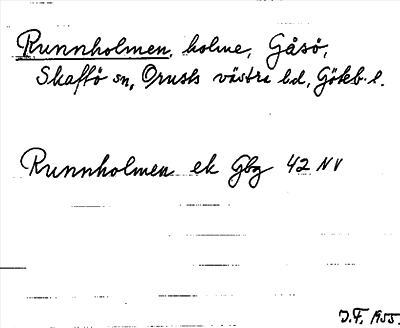 Runnholmen, holme, Gåsö,
Skaftö sn, Orusts västra hd, Götkb. l.
Runnholmen ek Gbg 42 NV
J.F. 1955.